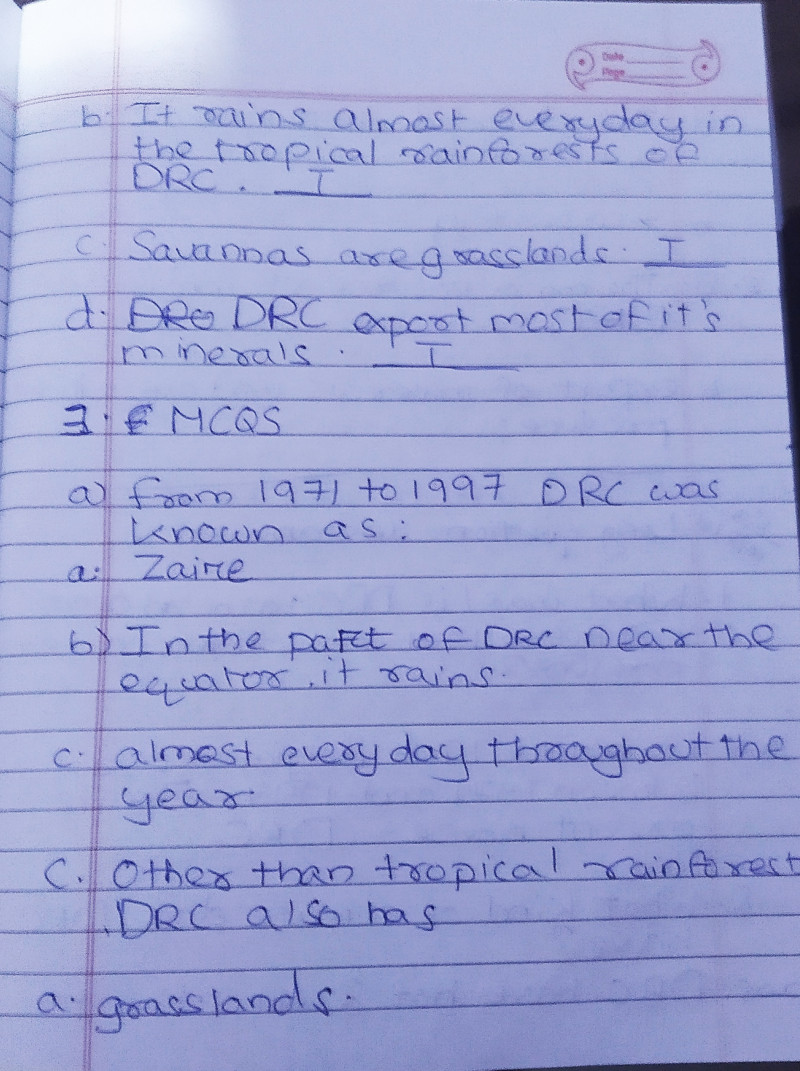 Date
Page
b. It rains almost everyday in
the tropical rainforests of
DRC. T
c. Savannas are grasslands. T
d. DRC DRC export most of it's
minerals. T
3. MCQS
a) from 1971 to 1997 DRC was
known as:
a. Zaire
b) In the part of DRC near the
equator, it rains.
c. almost everyday throughout the
year.
C. Other than tropical rainforest
, DRC also has
a. grasslands.